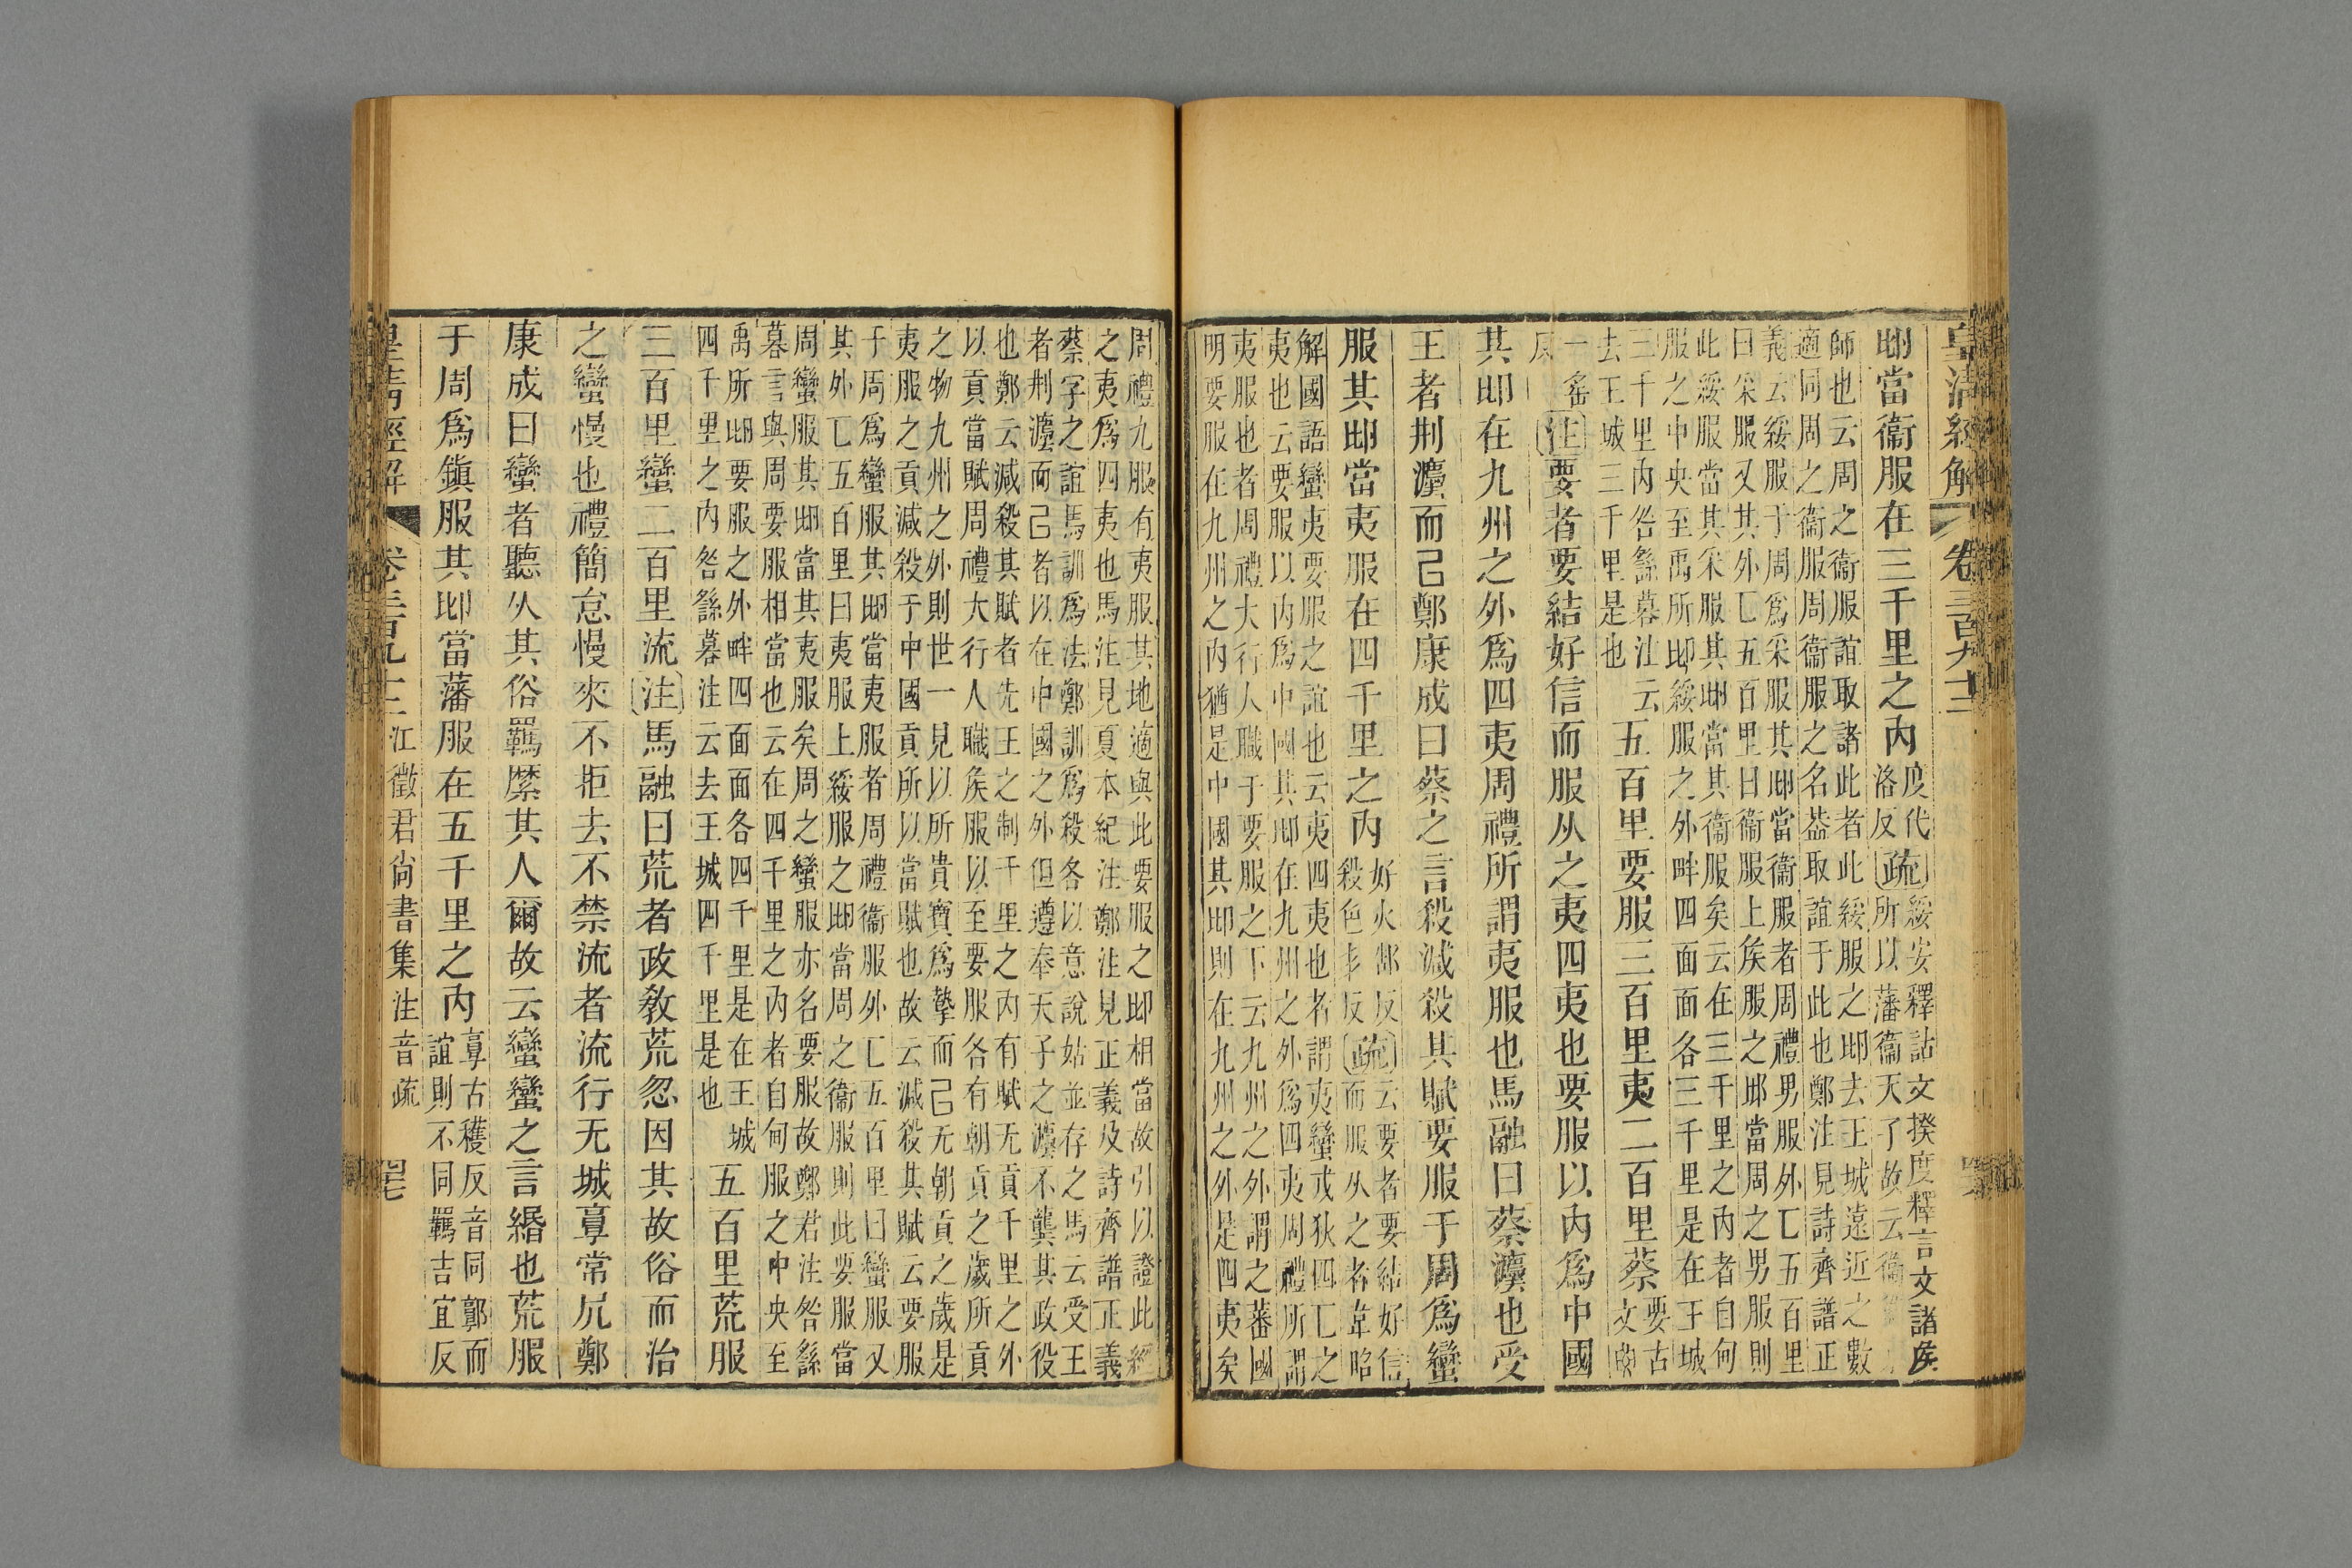 皇清經解 卷三百九十二
㔽當衞服在三千里之內
度代
洛反
疏
綏安釋詁文揆度釋言文諸矦
所以藩衞天子故云衞
師也云周之衞服誼取諸此者此綏服之㔽去王城遠近之數
適同周之衞服周衞服之名葢取誼于此也鄭注見詩齊譜正
義云綏服于周爲采服其㔽當衞服者周禮男服外匚五百里
曰采服又其外匚五百里曰衞服上矦服之㔽當周之男服則
此綏服當其采服其㔽當其衞服矣云在三千里之內者自甸
服之中央至禹所㔽綏服之外畔四面面各三千里是在王城
三千里內咎繇䓬注云
去王城三千里是也
五百里要服三百里夷二百里蔡
要古
文
一窑
注
要者要結好信而服从之夷四夷也要服以內爲中國
其㔽在九州之外爲四夷周禮所謂夷服也馬融曰蔡灋也受
王者荆灋而已鄭康成曰蔡之言殺減殺其賦要服于周爲蠻
服其㔽當夷服在四千里之內
好火郵反
殺色丯反
疏
云要者要結好信
而服从之者韋昭
解國語蠻夷要服之誼也云夷四夷也者謂夷蠻戎狄四匚之
夷也云要服以內爲中國其㔽在九州之外爲四夷周禮所謂
夷服也者周禮大行人職于要服之下云九州之外謂之蕃國
明要服在九州之內猶是中國其㔽則在九州之外是四夷矣
周禮九服有夷服其地適與此要服之㔽相當故引以證此經
之夷爲四夷也馬注見夏本紀注鄭注見正義及詩齊譜正義
蔡字之誼馬訓爲法鄭訓爲殺各以意說姑並存之馬云受王
者荆灋而已者以在中國之外但遵奉天子之灋不龔其政役
也鄭云減殺其賦者先王之制千里之內有賦无貢千里之外
以貢當賦周禮大行人職矦服以至要服各有朝貢之歲所貢
之物九州之外則世一見以所貴寶爲摯而已无朝貢之歲是
夷服之貢減殺于中國貢所以當賦也故云減殺其賦云要服
于周爲蠻服其㔽當夷服者周禮衞服外匚五百里曰蠻服又
其外匚五百里曰夷服上綏服之㔽當周之衞服則此要服當
周蠻服其㔽當其夷服矣周之蠻服亦名要服故鄭君注咎繇
䓬言與周要服相當也云在四千里之內者自甸服之中央至
禹所㔽要服之外畔四面面各四千里是在王城
四千里之內咎繇䓬注云去王城四千里是也
五百里荒服
三百里蠻二百里流
注
馬融曰荒者政敎荒忽因其故俗而治
之蠻慢也禮簡怠慢來不拒去不禁流者流行无城𩫏常凥鄭
康成曰蠻者聽从其俗羈縻其人爾故云蠻蠻之言緡也荒服
于周爲鎭服其㔽當藩服在五千里之內
𩫏古穫反音同郭而
誼則不同羈吉宜反
皇清經解 卷三百九十二 江徵君尙書集注音疏